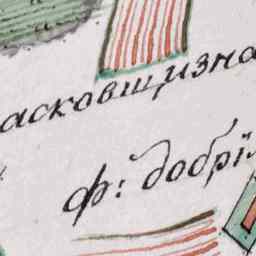 асковщизна
ф: добрі